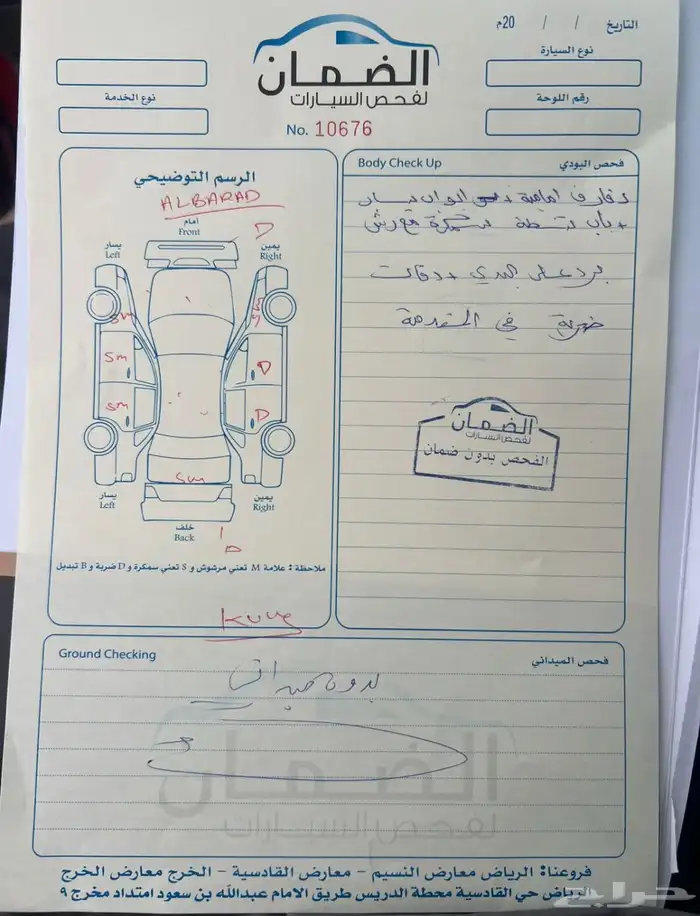 التاريخ / / 20م
نوع السيارة
رقم اللوحة
نوع الخدمة
الضمان
لفحص السيارات
No. 10676
الرسم التوضيحي
ALBARAD
أمام
Front
D
يسار
Left
يمين
Right
Sm
Sm
D
Sm
D
Sm
يسار
Left
يمين
Right
خلف
Back
D
ملاحظة : علامة M تعني مرشوش و S تعني سمكرة و D ضربة و B تبديل
Body Check Up
فحص البودي
رفارف امامية + ابواب يسار
+ باب شنطة سمكرة ورش
برد على البدي + دقات
ضربة في المقدمة
الضمان
لفحص السيارات
الفحص بدون ضمان
Ground Checking
فحص الميداني
الضمان
لفحص السيارات
فروعنا: الرياض معارض النسيم - معارض القادسية - الخرج معارض الخرج
الرياض حي القادسية محطة الدريس طريق الامام عبدالله بن سعود امتداد مخرج ٩
حراج